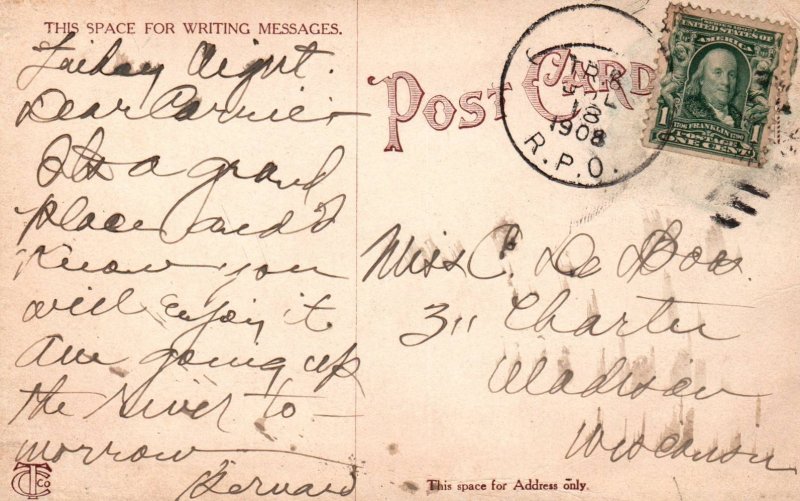 THIS SPACE FOR WRITING MESSAGES.
Friday Night.
Dear Carrie-
Its a grand
place and I
know you
will enjoy it
Am going up
the river to-
morrow
Bernard
TCT Co
POST CARD
TR. &
JUL
18
1908
R.P.O.
UNITED STATES OF
AMERICA
1706 FRANKLIN 1790
1 POSTAGE 1
ONE CENT
Miss C. De Boos.
311 Charter
Madison
Wisconsin
This space for Address only.